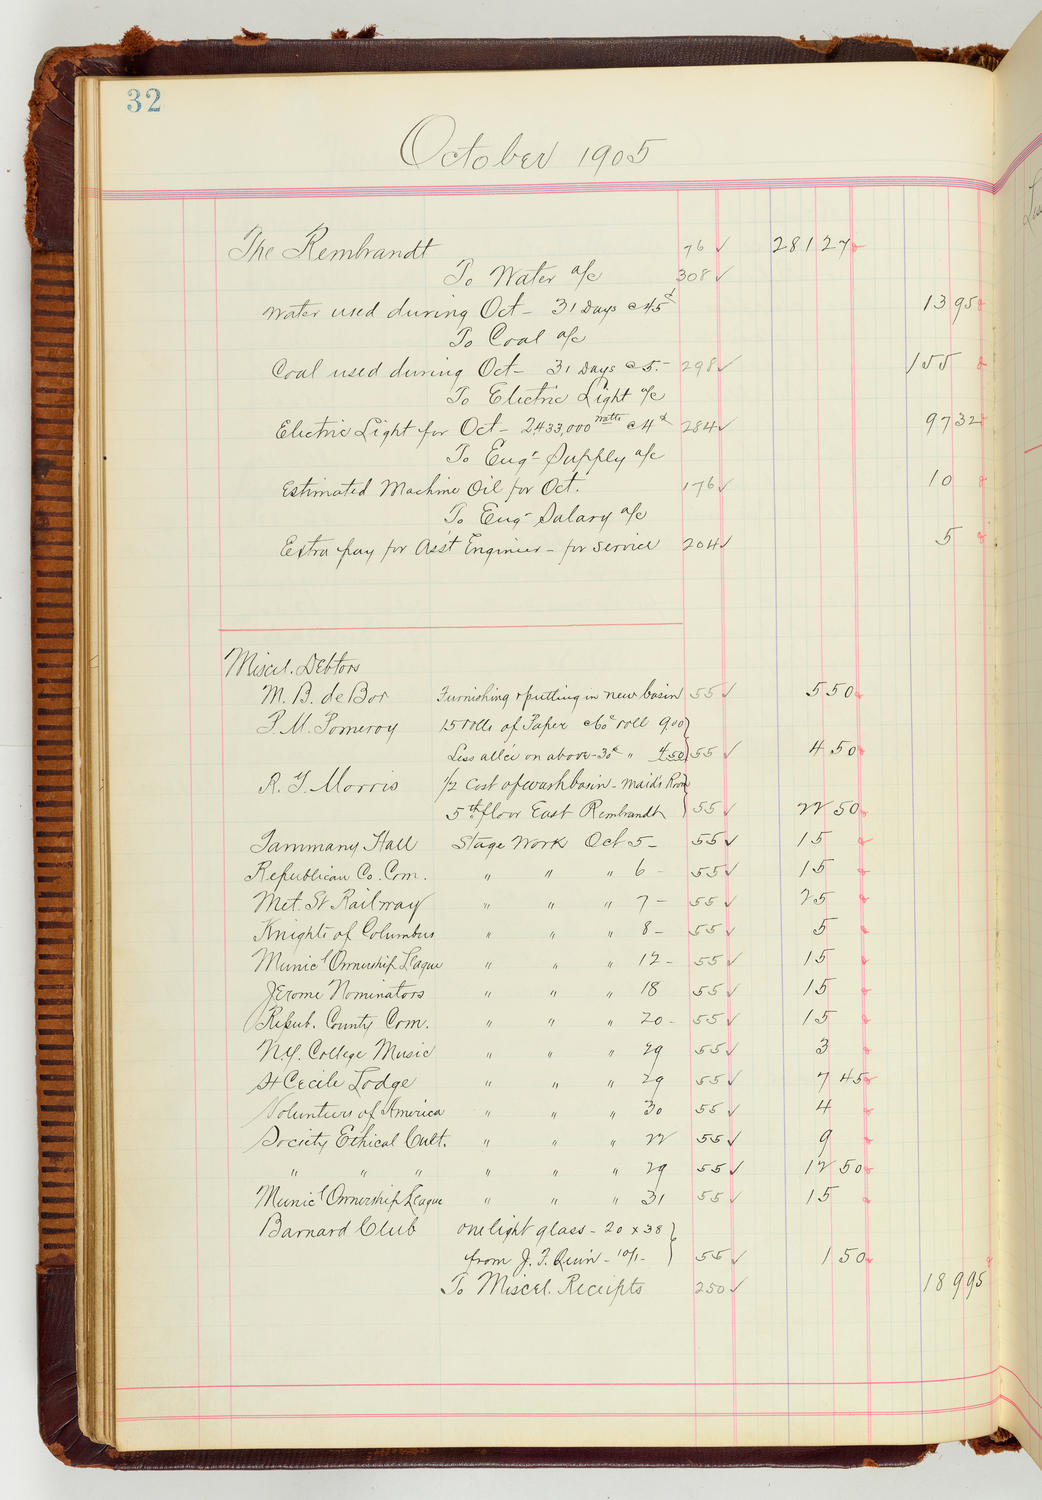 32
October 1905
The Rembrandt 76 ✓ 281 27
To Water a/c 308 ✓
Water used during Oct - 31 Days @ 45¢ 13 95
To Coal a/c
Coal used during Oct - 31 Days @ 5.- 298 ✓ 155
To Electric Light a/c
Electric Light for Oct - 2433,000 Watts @ 4¢ 284 ✓ 97 32
To Eng'r Supply a/c
Estimated Machine Oil for Oct. 176 ✓ 10
To Eng'r Salary a/c
Extra pay for Ass't Engineer - for service 204 ✓ 5
Miscel. Debtors
M. B. de Bor Furnishing & putting in new basin 55 ✓ 5 50
P. M. Pomeroy 15 rolls of Paper @ 60¢ roll 9.00
Less allce on above - 30¢ " 4.50 55 ✓ 4 50
R. T. Morris 1/2 Cost of washbasin - Maids Room
5th floor East Rembrandt 55 ✓ 22 50
Tammany Hall Stage Work Oct 5 - 55 ✓ 15
Republican Co. Com. " " " 6 - 55 ✓ 15
Met. St Railway " " " 7 - 55 ✓ 25
Knights of Columbus " " " 8 - 55 ✓ 5
Munic'l Ownership League " " " 12 - 55 ✓ 15
Jerome Nominators " " " 18 55 ✓ 15
Repub. County Com. " " " 20 - 55 ✓ 15
N.Y. College Music " " " 29 55 ✓ 3
St Cecile Lodge " " " 29 55 ✓ 7 45
Volunteers of America " " " 30 55 ✓ 4
Society Ethical Cult. " " " 22 55 ✓ 9
" " " " " " 29 55 ✓ 12 50
Munic'l Ownership League " " " 31 55 ✓ 15
Barnard Club one light glass - 20 x 38
from J. F. Quin - 10/1 - 55 ✓ 1 50
To Miscel. Receipts 250 ✓ 189 95